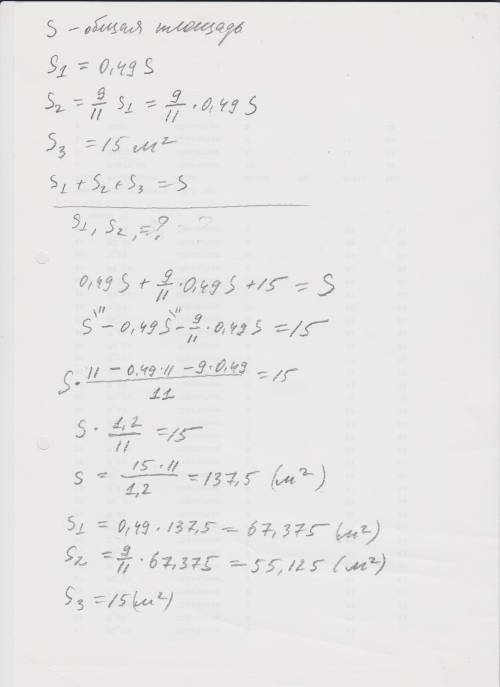 S – общая площадь
S₁ = 0,49 S
S₂ = 9/11 S₁ = 9/11 · 0,49 S
S₃ = 15 м²
S₁ + S₂ + S₃ = S
S₁, S₂, = ?
0,49 S + 9/11 · 0,49 S + 15 = S
S\¹¹ – 0,49 S\¹¹ – 9/11 · 0,49 S = 15
S · (11 – 0,49·11 – 9·0,49)/11 = 15
S · 1,2/11 = 15
S = 15·11/1,2 = 137,5 (м²)
S₁ = 0,49 · 137,5 = 67,375 (м²)
S₂ = 9/11 · 67,375 = 55,125 (м²)
S₃ = 15 (м²)